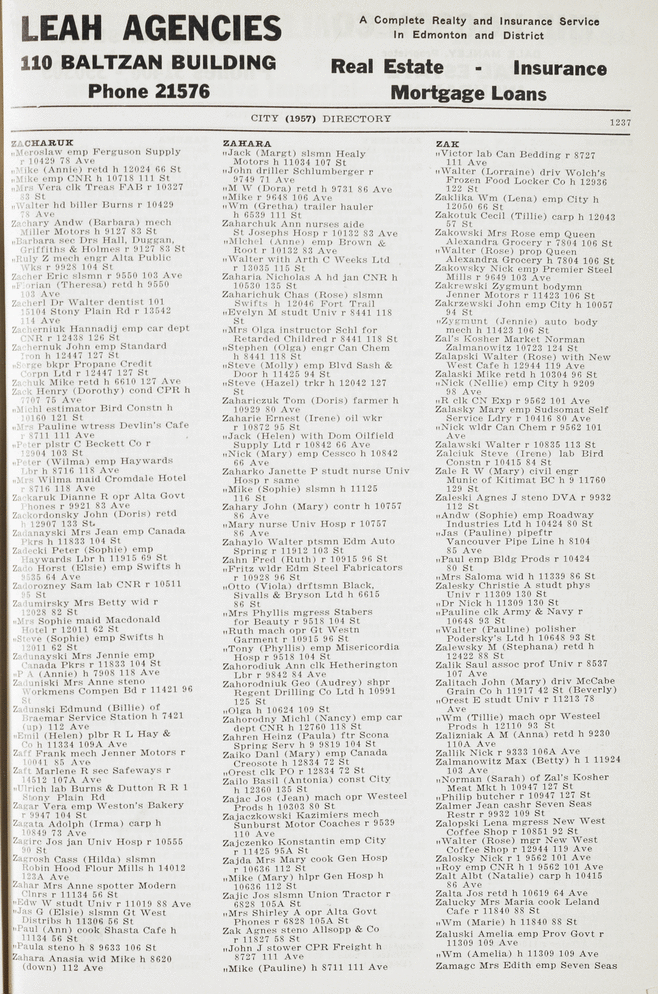 LEAH AGENCIES
110 BALTZAN BUILDING
Phone 21576
A Complete Realty and Insurance Service
In Edmonton and District
Real Estate - Insurance
Mortgage Loans
CITY (1957) DIRECTORY
1237
ZACHARUK
„Meroslaw emp Ferguson Supply
r 10429 78 Ave
„Mike (Annie) retd h 12024 66 St
„Mike emp CNR h 10718 111 St
„Mrs Vera clk Treas FAB r 10327
83 St
„Walter hd biller Burns r 10429
78 Ave
Zachary Andw (Barbara) mech
Miller Motors h 9127 83 St
„Barbara sec Drs Hall, Duggan,
Griffiths & Holmes r 9127 83 St
„Ruly Z mech engr Alta Public
Wks r 9928 104 St
Zacher Eric slsmn r 9550 103 Ave
„Florian (Theresa) retd h 9550
103 Ave
Zacherl Dr Walter dentist 101
15104 Stony Plain Rd r 13542
114 Ave
Zacherniuk Hannadij emp car dept
CNR r 12438 126 St
Zachernuk John emp Standard
Iron h 12447 127 St
„Serge bkpr Propane Credit
Corpn Ltd r 12447 127 St
Zachuk Mike retd h 6610 127 Ave
Zack Henry (Dorothy) cond CPR h
7707 75 Ave
„Michl estimator Bird Constn h
10160 121 St
„Mrs Pauline wtress Devlin's Cafe
r 8711 111 Ave
„Peter plstr C Beckett Co r
12904 103 St
„Peter (Wilma) emp Haywards
Lbr h 8716 118 Ave
„Mrs Wilma maid Cromdale Hotel
r 8716 118 Ave
Zackaruk Dianne R opr Alta Govt
Phones r 9921 83 Ave
Zackordonsky John (Doris) retd
h 12907 133 St
Zadanayski Mrs Jean emp Canada
Pkrs h 11833 104 St
Zadecki Peter (Sophie) emp
Haywards Lbr h 11915 69 St
Zado Horst (Elsie) emp Swifts h
9535 64 Ave
Zadorozney Sam lab CNR r 10511
95 St
Zadumirsky Mrs Betty wid r
12028 82 St
„Mrs Sophie maid Macdonald
Hotel r 12011 62 St
„Steve (Sophie) emp Swifts h
12011 62 St
Zadunayski Mrs Jennie emp
Canada Pkrs r 11833 104 St
„P A (Annie) h 7908 118 Ave
Zaduniski Mrs Anne steno
Workmens Compen Bd r 11421 96
St
Zadunski Edmund (Billie) of
Braemar Service Station h 7421
(up) 112 Ave
„Emil (Helen) plbr R L Hay &
Co h 11334 109A Ave
Zaff Frank mech Jenner Motors r
10041 85 Ave
Zaft Marlene R sec Safeways r
14512 107A Ave
„Ulrich lab Burns & Dutton R R 1
Stony Plain Rd
Zagar Vera emp Weston's Bakery
r 9947 104 St
Zagata Adolph (Irma) carp h
10849 73 Ave
Zagire Jos jan Univ Hosp r 10555
90 St
Zagrosh Cass (Hilda) slsmn
Robin Hood Flour Mills h 14012
123A Ave
Zahar Mrs Anne spotter Modern
Clnrs r 11134 56 St
„Edw W studt Univ r 11019 88 Ave
„Jas G (Elsie) slsmn Gt West
Distribs h 11306 56 St
„Paul (Ann) cook Shasta Cafe h
11134 56 St
„Paula steno h 8 9633 106 St
Zahara Anasia wid Mike h 8620
(down) 112 Ave
ZAHARA
„Jack (Margt) slsmn Healy
Motors h 11034 107 St
„John driller Schlumberger r
9749 71 Ave
„M W (Dora) retd h 9731 86 Ave
„Mike r 9648 106 Ave
„Wm (Gretha) trailer hauler
h 6539 111 St
Zaharchuk Ann nurses aide
St Josephs Hosp r 10132 83 Ave
„Michel (Anne) emp Brown &
Root r 10132 83 Ave
„Walter with Arth C Weeks Ltd
r 13035 115 St
Zaharia Nicholas A hd jan CNR h
10530 135 St
Zaharichuk Chas (Rose) slsmn
Swifts h 12046 Fort Trail
„Evelyn M studt Univ r 8441 118
St
„Mrs Olga instructor Schl for
Retarded Childred r 8441 118 St
„Stephen (Olga) engr Can Chem
h 8441 118 St
„Steve (Molly) emp Blvd Sash &
Door h 11425 94 St
„Steve (Hazel) trkr h 12042 127
St
Zahariczuk Tom (Doris) farmer h
10929 80 Ave
Zaharie Ernest (Irene) oil wkr
r 10872 95 St
„Jack (Helen) with Dom Oilfield
Supply Ltd r 10842 66 Ave
„Nick (Mary) emp Cessco h 10842
66 Ave
Zaharko Janette P studt nurse Univ
Hosp r same
„Mike (Sophie) slsmn h 11125
116 St
Zahary John (Mary) contr h 10757
86 Ave
„Mary nurse Univ Hosp r 10757
86 Ave
Zahaylo Walter ptsmn Edm Auto
Spring r 11912 103 St
Zahn Fred (Ruth) r 10915 96 St
„Fritz wldr Edm Steel Fabricators
r 10928 96 St
„Otto (Viola) drftsmn Black,
Sivalls & Bryson Ltd h 6615
86 St
„Mrs Phyllis mgress Stabers
for Beauty r 9518 104 St
„Ruth mach opr Gt Westn
Garment r 10915 96 St
„Tony (Phyllis) emp Misericordia
Hosp r 9518 104 St
Zahorodiuk Ann clk Hetherington
Lbr r 9842 84 Ave
Zahorodniuk Geo (Audrey) shpr
Regent Drilling Co Ltd h 10991
125 St
„Olga h 10624 109 St
Zahorodny Michl (Nancy) emp car
dept CNR h 12760 118 St
Zahren Heinz (Paula) ftr Scona
Spring Serv h 9 9819 104 St
Zaiko Danl (Mary) emp Canada
Creosote h 12834 72 St
„Orest clk PO r 12834 72 St
Zailo Basil (Antonia) const City
h 12360 135 St
Zajac Jos (Jean) mach opr Westeel
Prods h 10303 80 St
Zajaczkowski Kazimiers mech
Sunburst Motor Coaches r 9539
110 Ave
Zajczenko Konstantin emp City
r 11425 95A St
Zajda Mrs Mary cook Gen Hosp
r 10636 112 St
„Mike (Mary) hlpr Gen Hosp h
10636 112 St
Zajic Jos slsmn Union Tractor r
6828 105A St
„Mrs Shirley A opr Alta Govt
Phones r 6828 105A St
Zak Agnes steno Allsopp & Co
r 11827 58 St
„John J stower CPR Freight h
8727 111 Ave
„Mike (Pauline) h 8711 111 Ave
ZAK
„Victor lab Can Bedding r 8727
111 Ave
„Walter (Lorraine) driv Wolch's
Frozen Food Locker Co h 12936
122 St
Zaklika Wm (Lena) emp City h
12050 66 St
Zakotuk Cecil (Tillie) carp h 12043
57 St
Zakowski Mrs Rose emp Queen
Alexandra Grocery r 7804 106 St
„Walter (Rose) prop Queen
Alexandra Grocery h 7804 106 St
Zakowsky Nick emp Premier Steel
Mills r 9649 103 Ave
Zakrewski Zygmunt bodymn
Jenner Motors r 11423 106 St
Zakrzewski John emp City h 10057
94 St
„Zygmunt (Jennie) auto body
mech h 11423 106 St
Zal's Kosher Market Norman
Zalmanowitz 10723 124 St
Zalapski Walter (Rose) with New
West Cafe h 12944 119 Ave
Zalaski Mike retd h 10304 96 St
„Nick (Nellie) emp City h 9209
98 Ave
„R clk CN Exp r 9562 101 Ave
Zalasky Mary emp Sudsomat Self
Service Ldry r 10416 80 Ave
„Nick wldr Can Chem r 9562 101
Ave
Zalawski Walter r 10835 113 St
Zalciuk Steve (Irene) lab Bird
Constn r 10415 84 St
Zale R W (Mary) civil engr
Munic of Kitimat BC h 9 11760
129 St
Zaleski Agnes J steno DVA r 9932
112 St
„Andw (Sophie) emp Roadway
Industries Ltd h 10424 80 St
„Jas (Pauline) pipeftr
Vancouver Pipe Line h 8104
85 Ave
„Paul emp Bldg Prods r 10424
80 St
„Mrs Saloma wid h 11339 86 St
Zalesky Christie A studt phys
Univ r 11309 130 St
„Dr Nick h 11309 130 St
„Pauline clk Army & Navy r
10648 93 St
„Walter (Pauline) polisher
Podersky's Ltd h 10648 93 St
Zalewsky M (Stephana) retd h
12422 88 St
Zalik Saul assoc prof Univ r 8537
107 Ave
Zalitach John (Mary) driv McCabe
Grain Co h 11917 42 St (Beverly)
„Orest E studt Univ r 11213 78
Ave
„Wm (Tillie) mach opr Westeel
Prods h 12110 93 St
Zalizniak A M (Anna) retd h 9230
110A Ave
Zallik Nick r 9333 106A Ave
Zalmanowitz Max (Betty) h 1 11924
103 Ave
„Norman (Sarah) of Zal's Kosher
Meat Mkt h 10947 127 St
„Philip butcher r 10947 127 St
Zalmer Jean cashr Seven Seas
Restr r 9932 109 St
Zalopski Lena mgress New West
Coffee Shop r 10851 92 St
„Walter (Rose) mgr New West
Coffee Shop r 12944 119 Ave
Zalosky Nick r 1 9562 101 Ave
„Roy emp CNR h 1 9562 101 Ave
Zalt Albt (Natalie) carp h 10415
86 Ave
Zalta Jos retd h 10619 64 Ave
Zalucky Mrs Maria cook Leland
Cafe r 11840 88 St
„Wm (Marie) h 11840 88 St
Zaluski Amelia emp Prov Govt r
11309 109 Ave
„Wm (Amelia) h 11309 109 Ave
Zamagc Mrs Edith emp Seven Seas